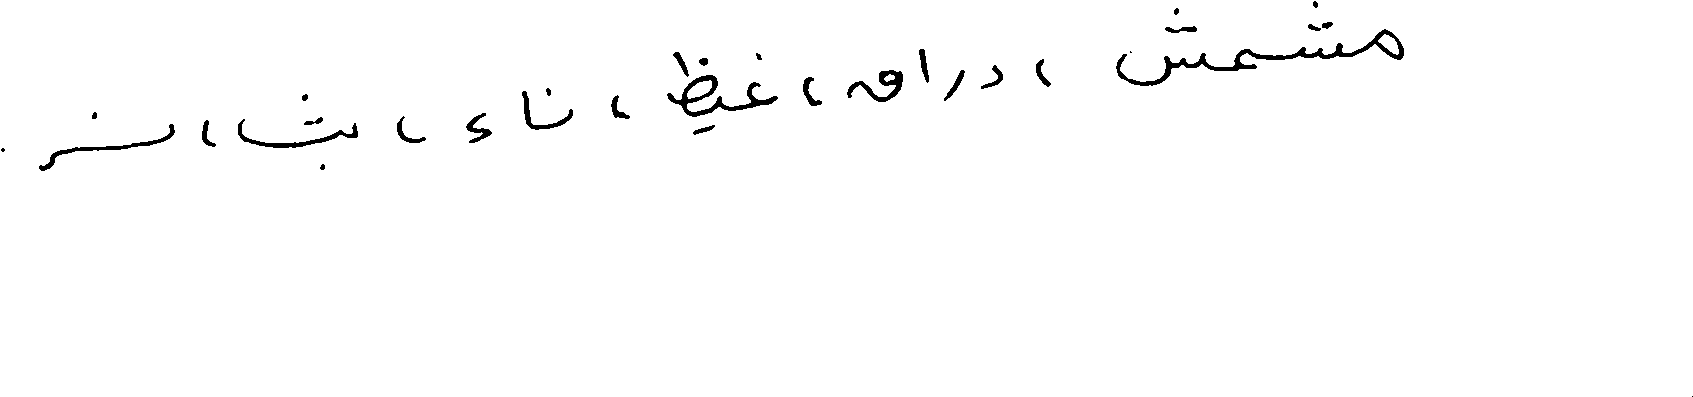 مشمش ، دراق ، غيظ ، ناء ، بث ، سن